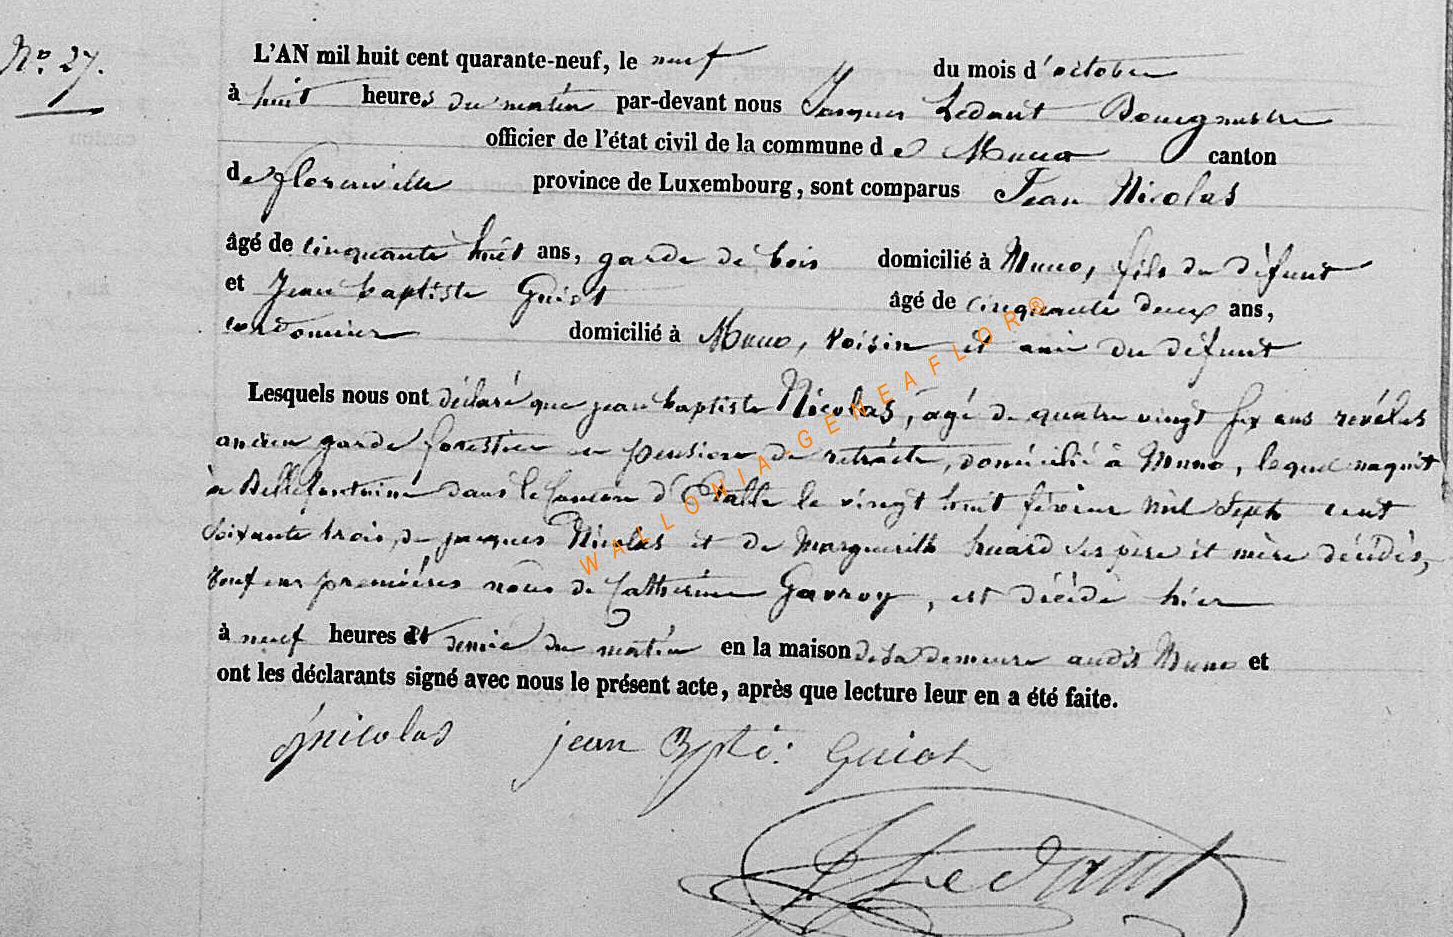 No. 27.
L'AN mil huit cent quarante-neuf, le neuf du mois d'octobre
à huit heures du matin par-devant nous Jacques Ledant Bourgmestre
officier de l'état civil de la commune de Muno canton
de florenville province de Luxembourg, sont comparus Jean Nicolas
âgé de cinquante huit ans, garde de bois domicilié à Muno, fils du défunt
et Jean baptiste Guiot âgé de cinquante deux ans,
cordonnier domicilié à Muno, voisin et ami du défunt
Lesquels nous ont déclaré que jean baptiste Nicolas, agé de quatre vingt six ans révolus
ancien garde forestier en pension de retraite, domicilié à Muno, lequel naquit
à Bellefontaine dans le Canton d'Etalle le vingt huit février mil sept cent
soixante trois, de jacques Nicolas et de Marguerith huard ses père et mère décédés,
veuf en premières noces de Catherine Gavroy, est décédé hier
à neuf heures et demie du matin en la maison de sa demeure audit Muno et
ont les déclarants signé avec nous le présent acte, après que lecture leur en a été faite.
jnicolas jean Bpte: Guiot
J Ledant
WALLONIA-GENEAFLOR®